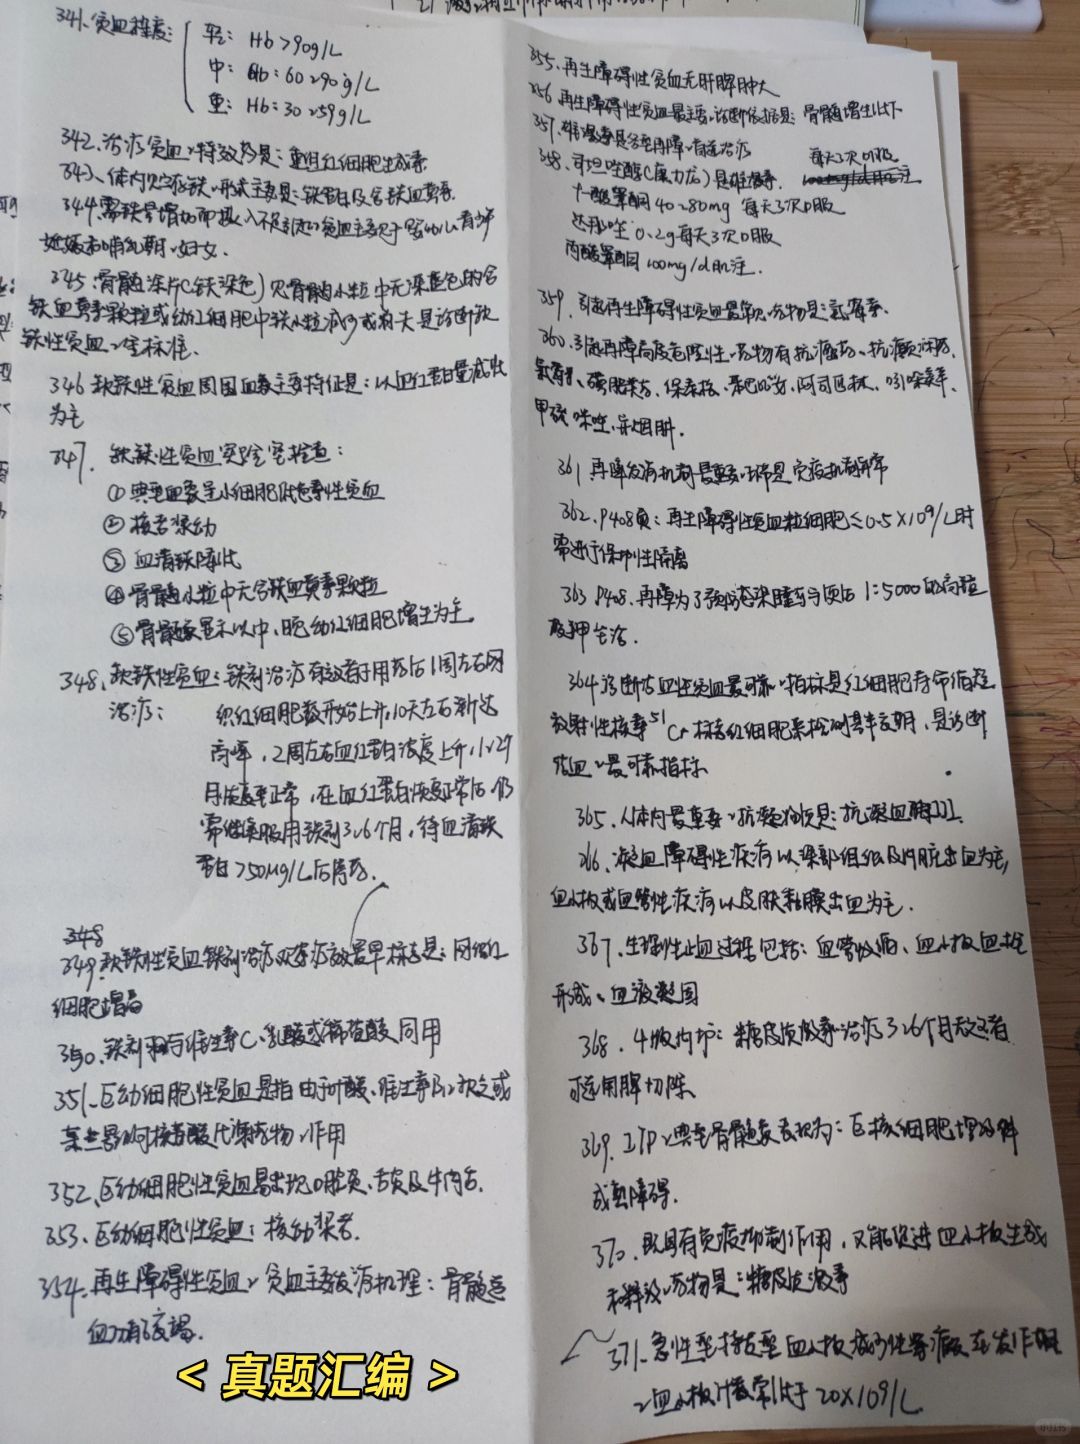 341、贫血程度：
轻：Hb>90g/L
中：Hb：60~90g/L
重：Hb：30~59g/L
342、治疗贫血、特效药是：重组红细胞生成素
343、体内贮存铁、形式主要是：铁蛋白及含铁血黄素.
344、需铁量增加而摄入不足引起、贫血主要见于 婴幼儿、青少年
妊娠和哺乳期、妇女
345、骨髓涂片(铁染色)见骨髓小粒中无深蓝色的含
铁血黄素颗粒或幼红细胞中铁小粒减少或消失是诊断缺
铁性贫血、金标准.
346 缺铁性贫血周围血象主要特征是：以血红蛋白量减少
为主
347、缺铁性贫血实验室检查：
①典型血象呈小细胞低色素性贫血
②核老浆幼
③血清铁降低
④骨髓小粒中无含铁血黄素颗粒
⑤骨髓象显示以中、晚幼红细胞增生为主.
348、缺铁性贫血：铁剂治疗有效者于用药后1周左右网
治疗：织红细胞数开始上升,10天左右渐达
高峰，2周左右血红蛋白浓度上升,1~2个
月恢复至正常，在血红蛋白恢复正常后,仍
需继续服用铁剂3~6个月，待血清铁
蛋白>50μg/L后停药.
348
349、缺铁性贫血铁剂治疗观察疗效最早标志是：网织红
细胞增高
350、铁剂可与维生素C、乳酸或稀盐酸同用
351、巨幼细胞性贫血是指由于叶酸、维生素B12缺乏或
某些影响核苷酸代谢药物、作用
352、巨幼细胞性贫血易出现口腔炎、舌炎及牛肉舌.
353、巨幼细胞性贫血：核幼浆老.
354、再生障碍性贫血、贫血主要发病机理：骨髓造
血功能衰竭.
355、再生障碍性贫血无肝脾肿大
356、再生障碍性贫血最主要、诊断依据是：骨髓增生低下
357、雄激素是慢性再障、首选治疗
358、司坦唑醇(康力龙)是雄激素. 每天3次口服
十一酸睾酮 40~80mg 每天3次口服
达那唑 0.2g每天3次口服
丙酸睾酮 100mg/d肌注.
359、引起再生障碍性贫血最常见、药物是：氯霉素.
360、引起再障高度危险性、药物有抗癌药、抗癫痫药、
氯霉素、磺胺类药、保泰松、苯巴比妥、阿司匹林、吲哚美辛、
甲硫咪唑、异烟肼.
361 再障发病机制最重要、环节是免疫机制异常
362、P408页：再生障碍性贫血粒细胞≤0.5×10⁹/L时
需进行保护性隔离
363 P408、再障为了预防感染睡前与便后1:5000的高锰
酸钾坐浴.
364 诊断溶血性贫血最可靠、指标是红细胞寿命缩短,
放射性核素⁵¹Cr标志红细胞来检测其半衰期，是诊断
溶血、最可靠指标
365、人体内最重要、抗凝物质是：抗凝血酶III.
366、凝血障碍性疾病以深部组织及内脏出血为主，
血小板或血管性疾病以皮肤黏膜出血为主.
367、生理性止血过程包括：血管收缩、血小板血栓
形成、血液凝固
368、4版内护：糖皮质激素治疗3~6个月无效者
可选用脾切除.
369、ITP、典型骨髓象表现为：巨核细胞增多伴
成熟障碍.
370、既具有免疫抑制作用，又能促进血小板生成
和释放、药物是：糖皮质激素
371、急性型特发型血小板减少性紫癜在发作期
、血小板计数常低于20×10⁹/L
<真题汇编>
小红书